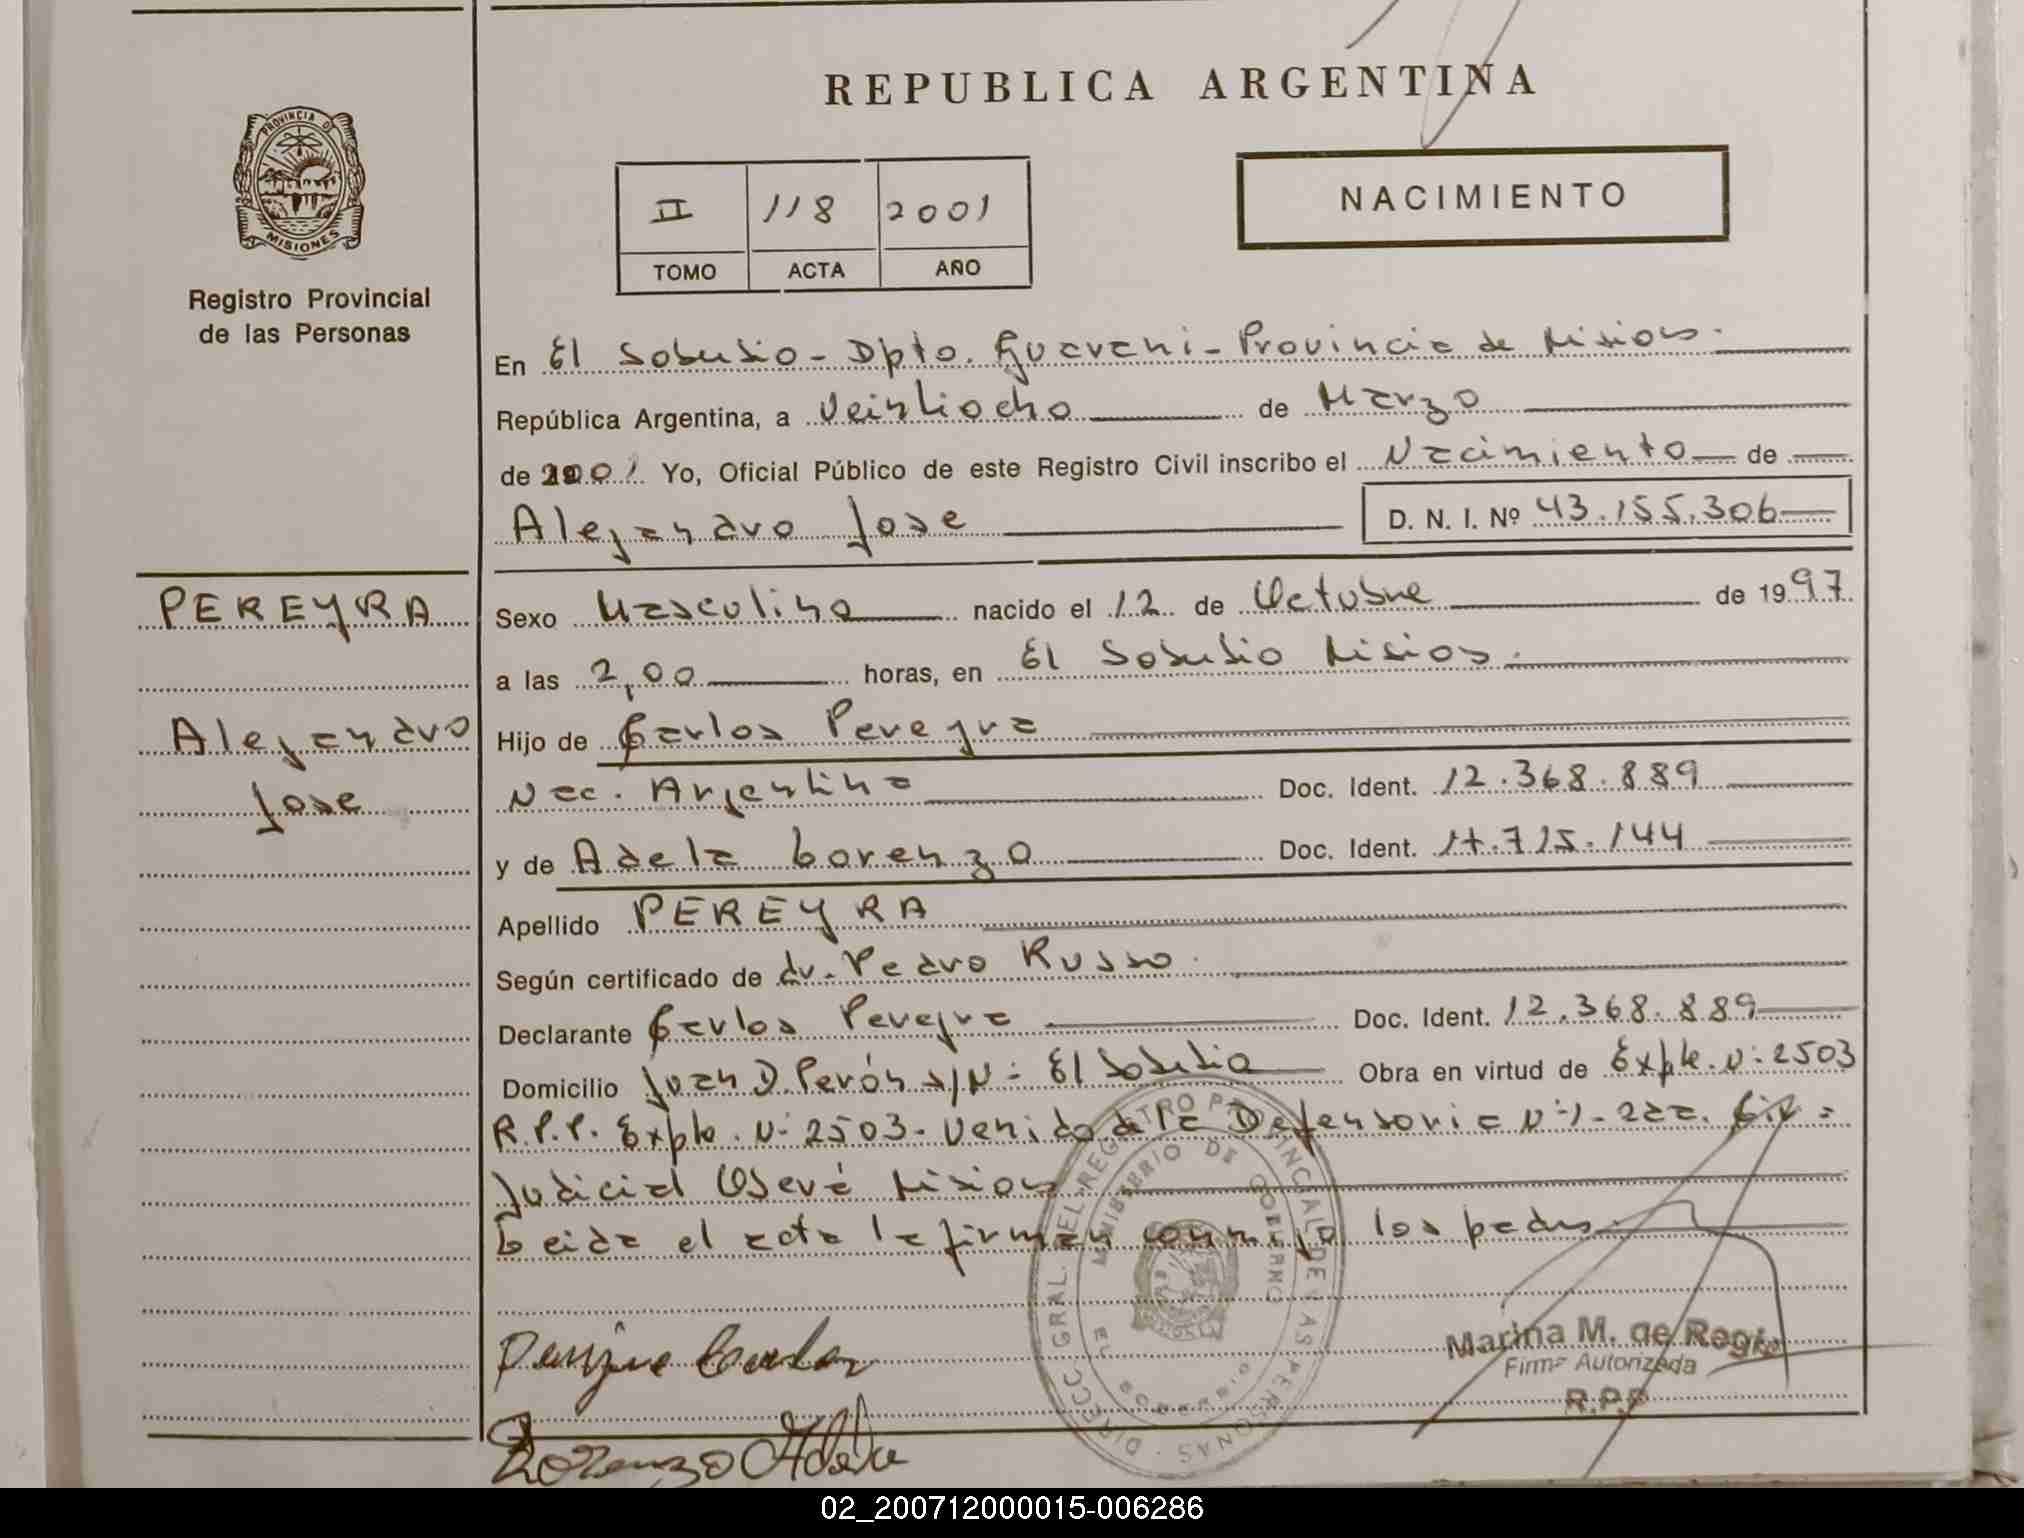 REPUBLICA ARGENTINA
PROVINCIA DE
MISIONES
Registro Provincial
de las Personas
NACIMIENTO
II 118 2001
TOMO ACTA AÑO
En El Soberbio - Dpto. Guarani - Provincia de Misiones.
República Argentina, a Veintiocho de Marzo
de 2001 Yo, Oficial Público de este Registro Civil inscribo el Nacimiento de
Alejandro Jose D. N. I. Nº 43.155.306
PEREYRA
Alejandro
Jose
Sexo Masculino nacido el 12 de Octubre de 1997
a las 2,00 horas, en El Soberbio Misiones.
Hijo de Carlos Pereyra
Nac. Argentina Doc. Ident. 12.368.889
y de Adela Lorenzo Doc. Ident. 17.715.144
Apellido PEREYRA
Según certificado de dr. Pedro Russo.
Declarante Carlos Pereyra Doc. Ident. 12.368.889
Domicilio Juan D. Perón s/Nº El Soberbio Obra en virtud de Expte. Nº 2503
R.P.P. Expte. Nº 2503. Venido de la Defensoria Nº 1 - 2da.
Judicial Oberá Misiones
Leida el acta la firman conmigo los padres.
DIRECC. GRAL. DEL REGISTRO PROVINCIAL DE LAS PERSONAS
MINISTERIO DE GOBIERNO
Pereyra Carlos
Lorenzo Adela
Marina M. de Regio
Firma Autorizada
R.P.P
02_200712000015-006286